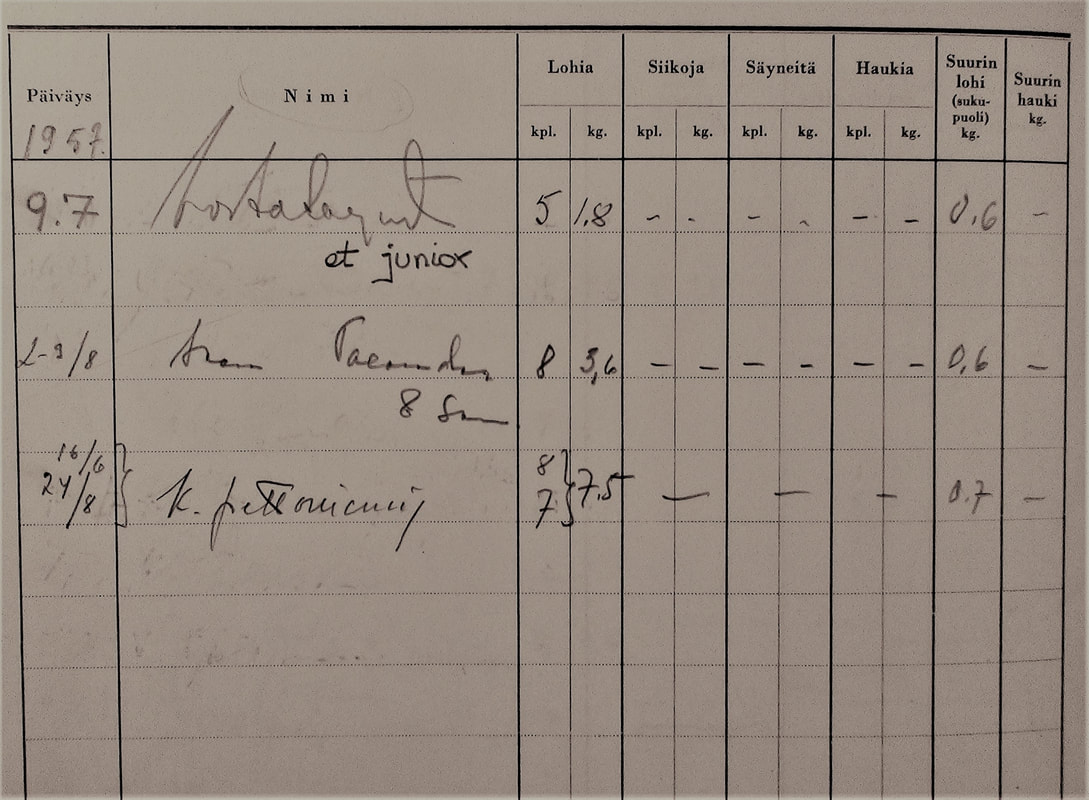 Päiväys Nimi Lohia Siikoja Säyneitä Haukia Suurin lohi (suku-puoli) kg. Suurin hauki kg.
kpl. kg. kpl. kg. kpl. kg. kpl. kg.
1957.
9.7 5 1.8 - - - - - - 0.6 -
et junior
2-3/8 8 3,6 - - - - - - 0,6 -
8
16/6 8
24/8 K. 7 7.5 - - - 0.7 -